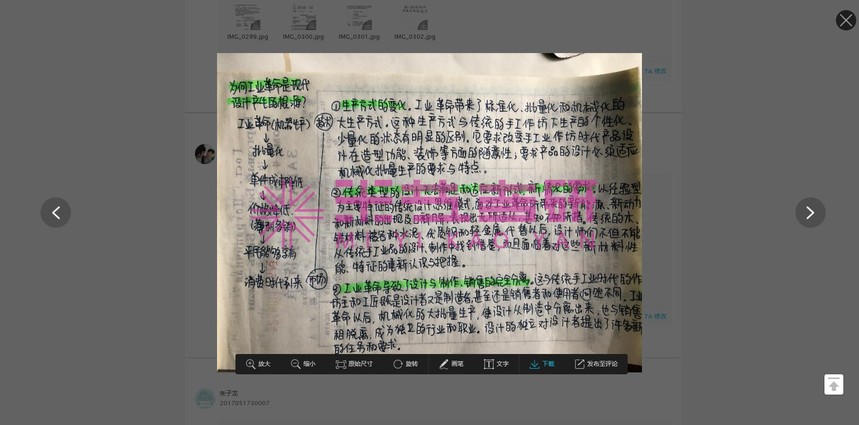 IMG_0299.jpg
IMG_0300.jpg
IMG_0301.jpg
IMG_0302.jpg
修改
为何工业革命是现代
设计产生的根源?
工业革命(机器生产)
↓
批量化
↓
单件成本降低
↓
价格降低
↓
平民能够享有
↓
消费时代到来
①生产方式的变化。工业革命带来了标准化、批量化和机械化的
大生产方式。这种生产方式与传统的手工作坊下生产的个性化、
少量化的状态有明显的区别。
计在造型功能、装饰等方面的随意性;要求产品的设计必须适应
机械化批量生产的要求与特点。
②传统类型的设计无法满足和适应新形式
为主要特征的传统设计思维模式,面对工业革命所带来的新能源、新动力
和新材料的出现及日新月异,表现出无所适从、
代替以后,设计师们不但不能
从传统手工业品的设计、制作中找到借鉴,而且面临着对这些新材料性
能、特征的重新认识与把握。
③工业革命导致了设计与制作、销售的完全分离。这与传统手工业时代的作
坊主和工匠既是设计者又是制造者,甚至还是销售者和使用者
革命以后,机械化的大批量生产,使设计从制造中分离出来,也与销售
相脱离,成为独立的行业和职业。设计的独立对设计者提出了许多新
的任务和要求。
放大
缩小
原始尺寸
旋转
画笔
文字
下载
发布至评论
修改
朱子龙